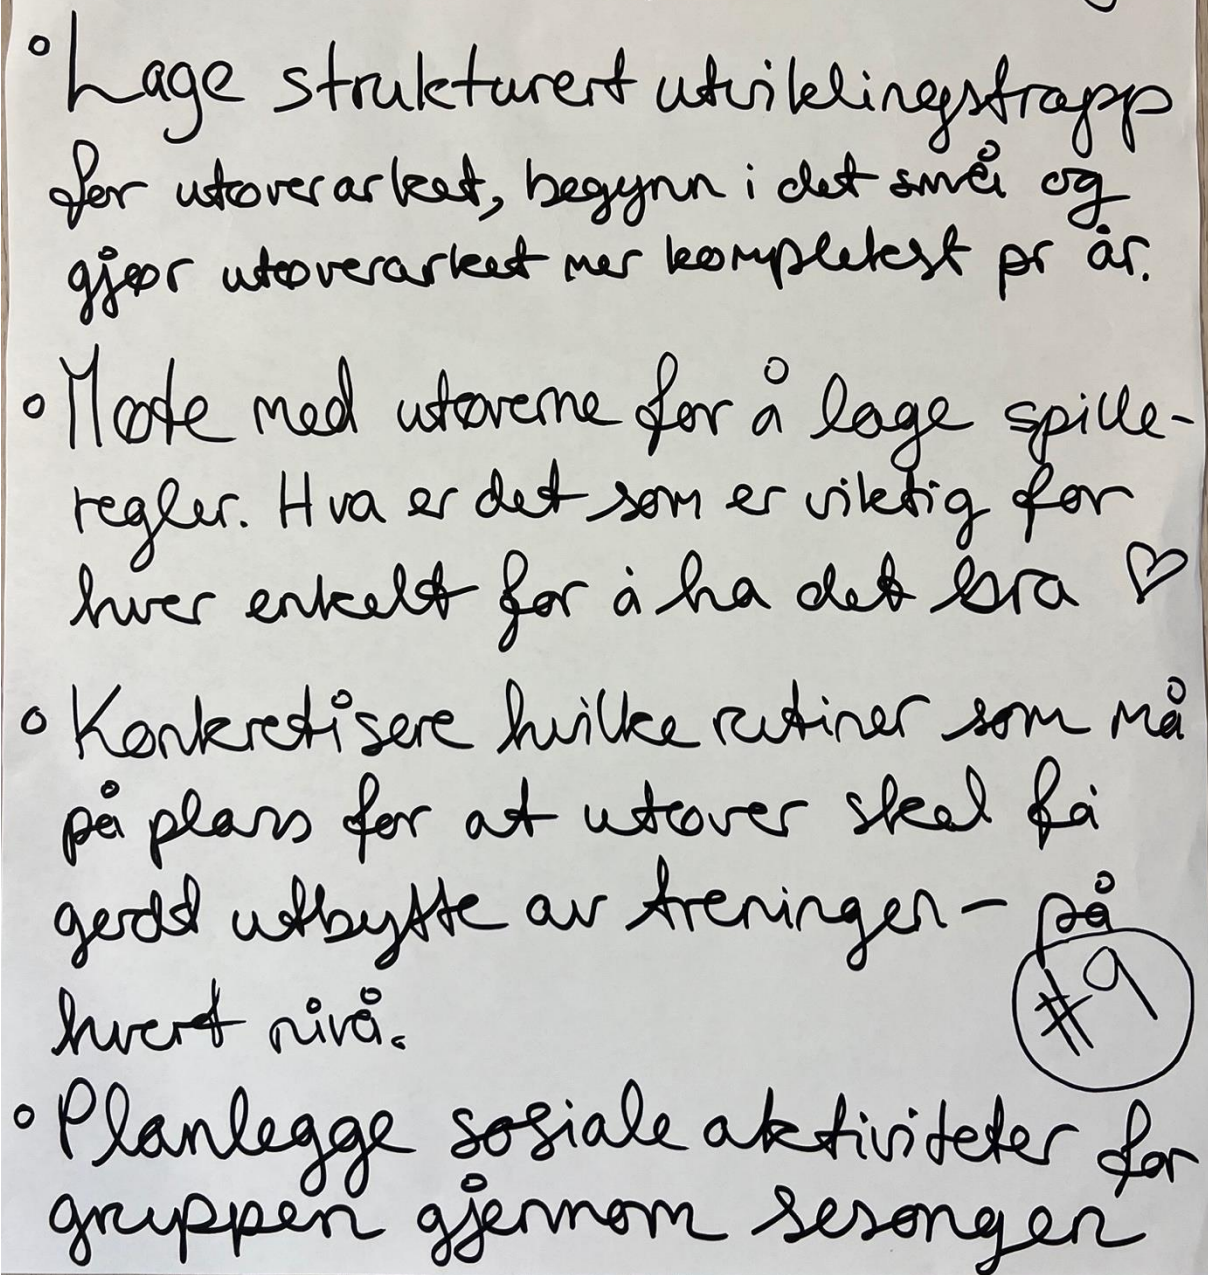 ° Lage strukturert utviklingstrapp
for utøverarket, begynn i det små og
gjør utøverarket mer komplekst pr år.
° Møte med utøverne for å lage spille-
regler. Hva er det som er viktig for
hver enkelt for å ha det bra ♡
° Konkretisere hvilke rutiner som må
på plass for at utøver skal få
godt utbytte av treningen - på
hvert nivå.
#9
° Planlegge sosiale aktiviteter for
gruppen gjennom sesongen